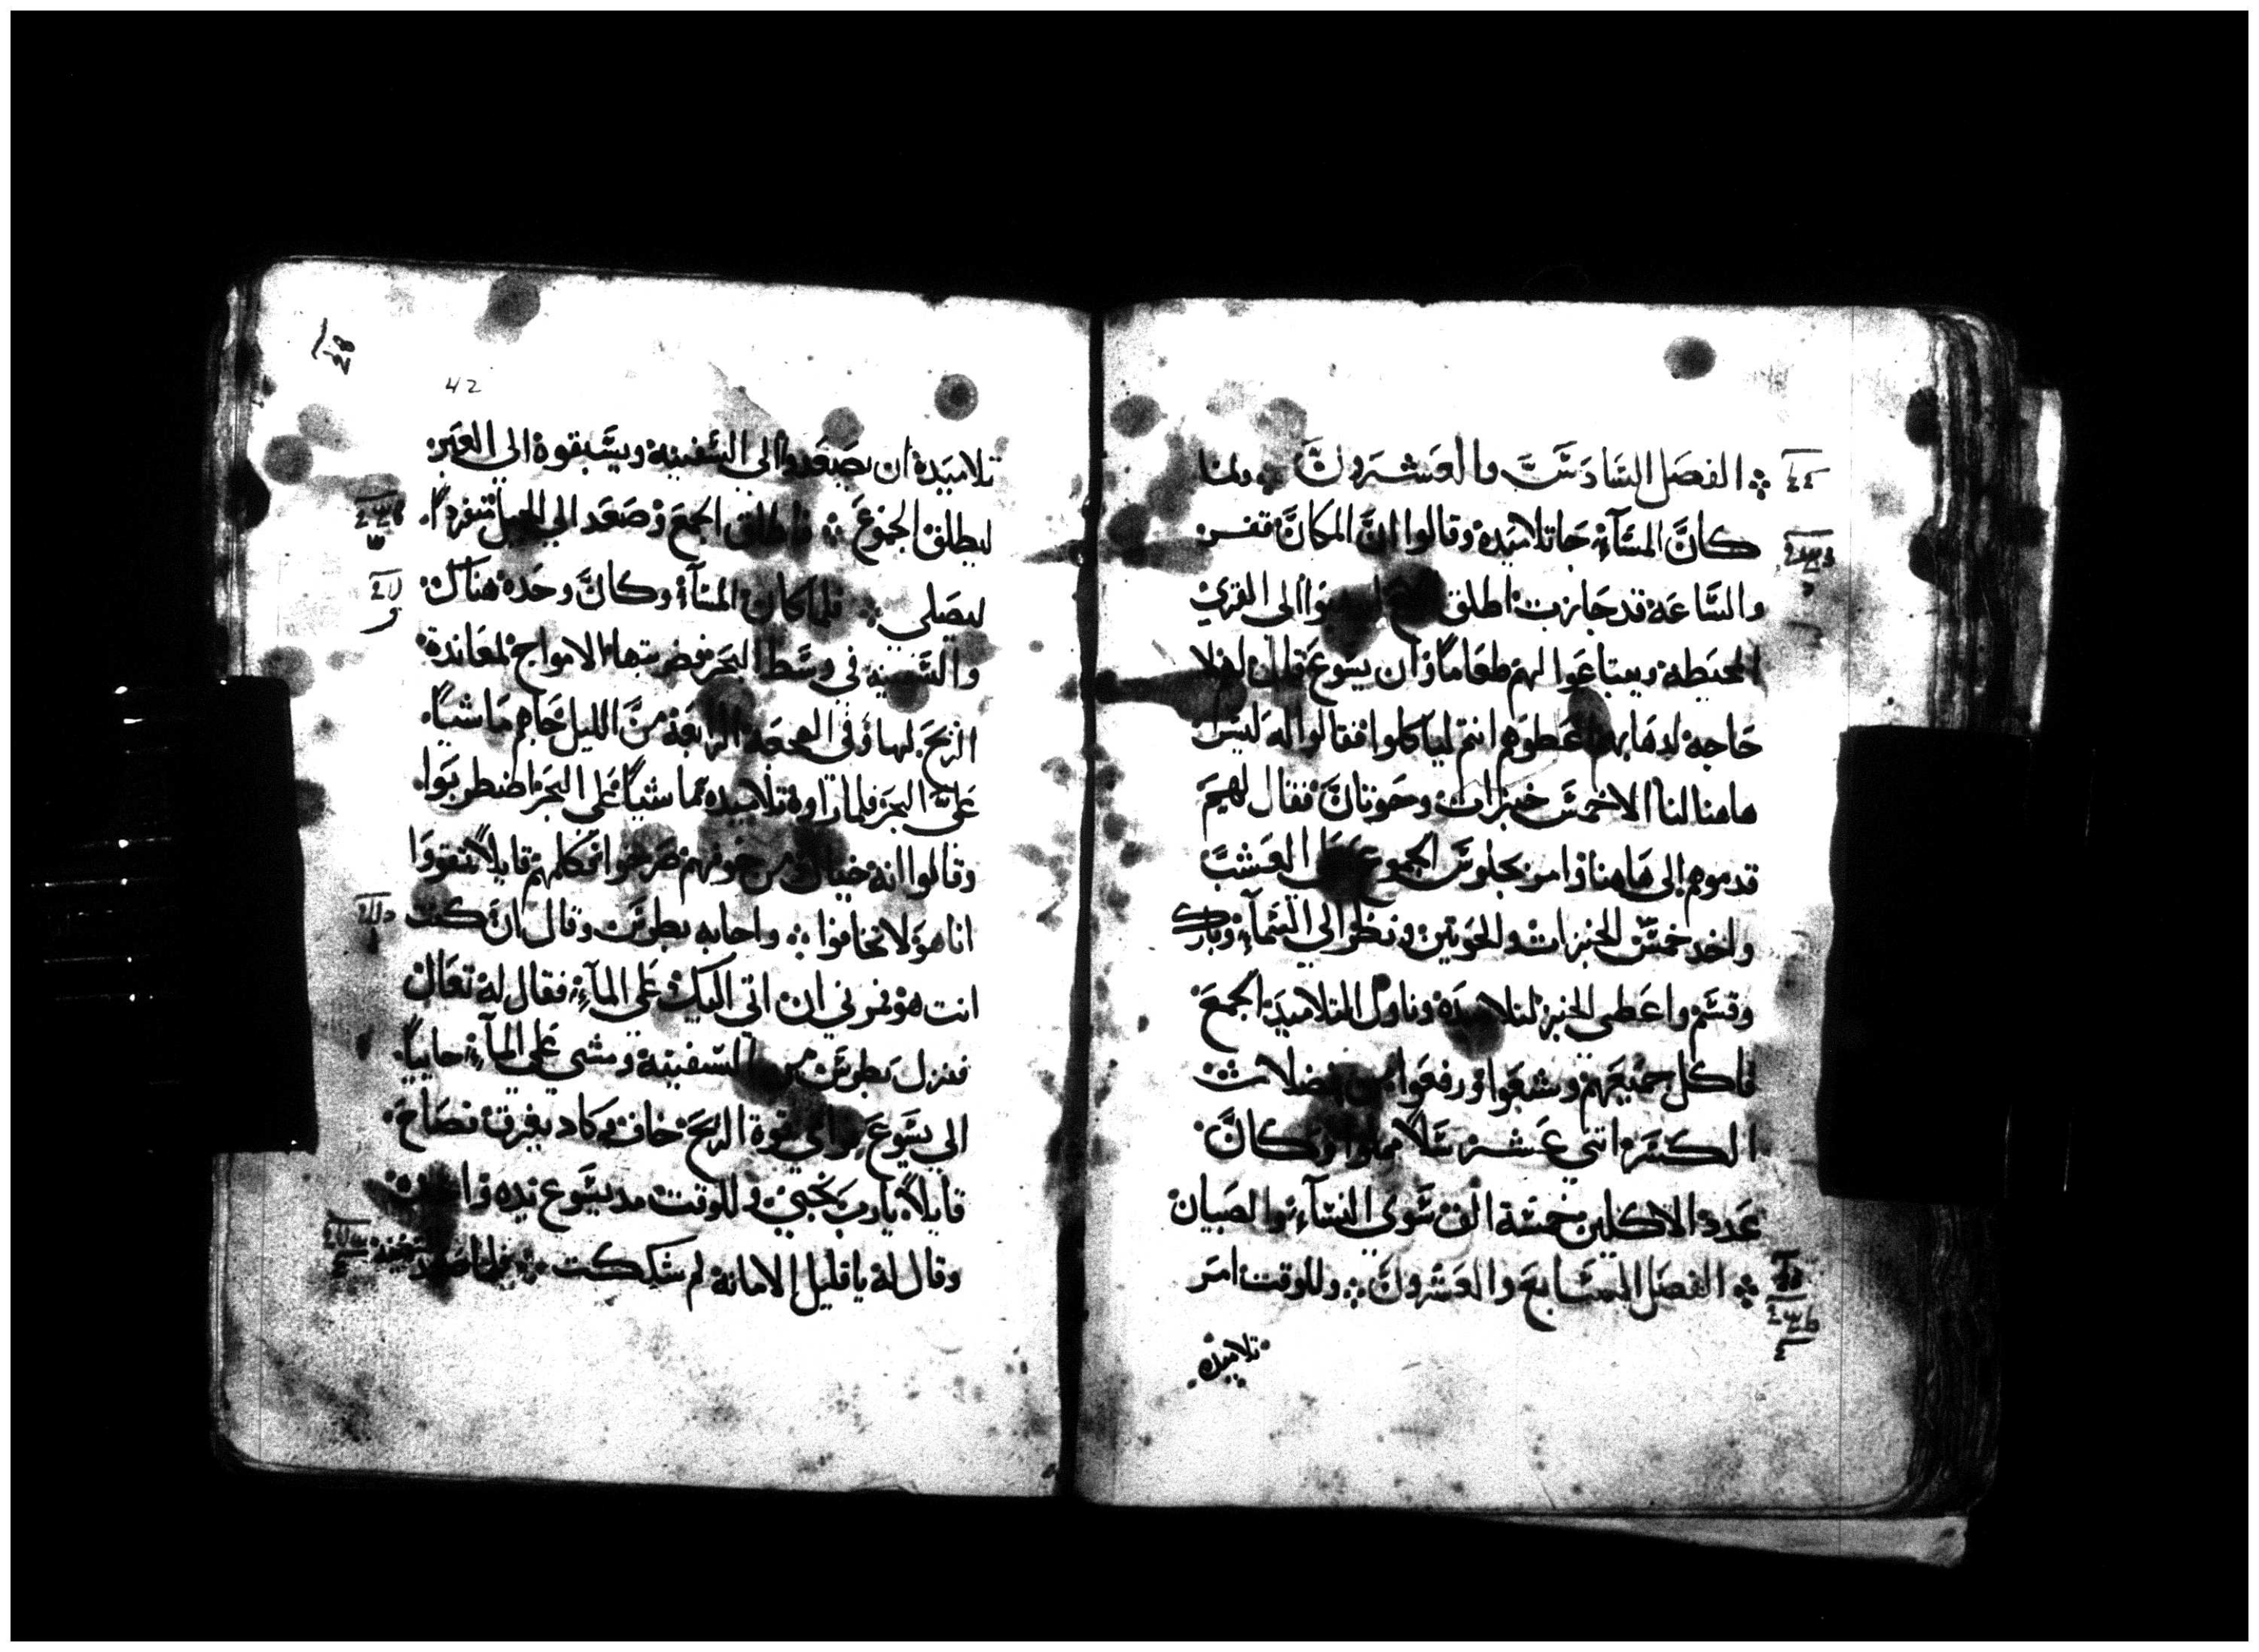 الفصَل السَّادسَّتَّ والعَشرونَّ ❖ ولما
كانَّ المسَآءِ جَا تلاميَده وقالوا انَّ المكانَّ قفر
والسَّاعَه قد جَازت اطلق ليدهبَوا الى القرىَ
المحيَطه ويبتاعَوا لهم طعَامًا وان يسَوعَ قال لهم لا
حَاجه لدهَابهم اعَطوهم انتم لياكلوا فقالوا له ليَس
هاهنا لنا الا خمسَّ خبزات وحَوتانَّ فقال لهمَ
قدموهم الى هَاهنا وامر بجلوسَ الجموع على العَشبَ
واخد خمسَّ الخبزات والحَوتين ونظر الي السَّمآءِ وبارك
وقسَّم واعَطى الخبز لتلاميَده وناول التلاميَد الجمعَ
فاكل جميَعَهم وشبعَوا ورفعَوا من فضلات
الكسَر اثني عَشر سَلاً مملوا وكانَّ
عَدد الاكلين خمسَة الف سَوى النسَآءِ والصَبيان
❖ الفصَل السَّابعَ والعَشرونَّ ❖ وللوقت امرَ
تلاميده
42
تلاميَده ان يصَعَدوا الى السَّفينه ويسَّبقوه الي العَبر
ليطلق الجموعَ ❖ فاطلق الجمعَ وصَعَد الي الجبل منفردًا
ليصَلي ❖ فلما كان المسَآء وكانَّ وحَده هناك
والسَّفينه في وسَّط البحَر تضربها الامواج لمعَاندة
الريَح لها وفي الهجعَة الرابعَة منَّ الليل جَاهم مَاشيًا
عَلى البحَر فلما راوه تلاميده مَاشيًا عَلى البحَر اضطربَوا
وقالوا انه خيال ومن خوفهم صَرخوا فكلمهم قايلاً تقووا
انا هوَ لا تخافوا ❖ واجابه بطرسَ وقال ان كنت
انت هو فمرني ان اتي اليك عَلى المآءِ فقال له تعَال
فنزل بطرسَ من السَّفينه ومشي عَلى المآءِ جاييًا
الى يسَوعَ فراي قوة الريَح خاف وكاد يغرق فصَاحَ
قايلاً يا رب نجيني وللوقت مد يسَّوع يده
وقال له يا قليل الامانه لم شككت ❖ فلما صَعد